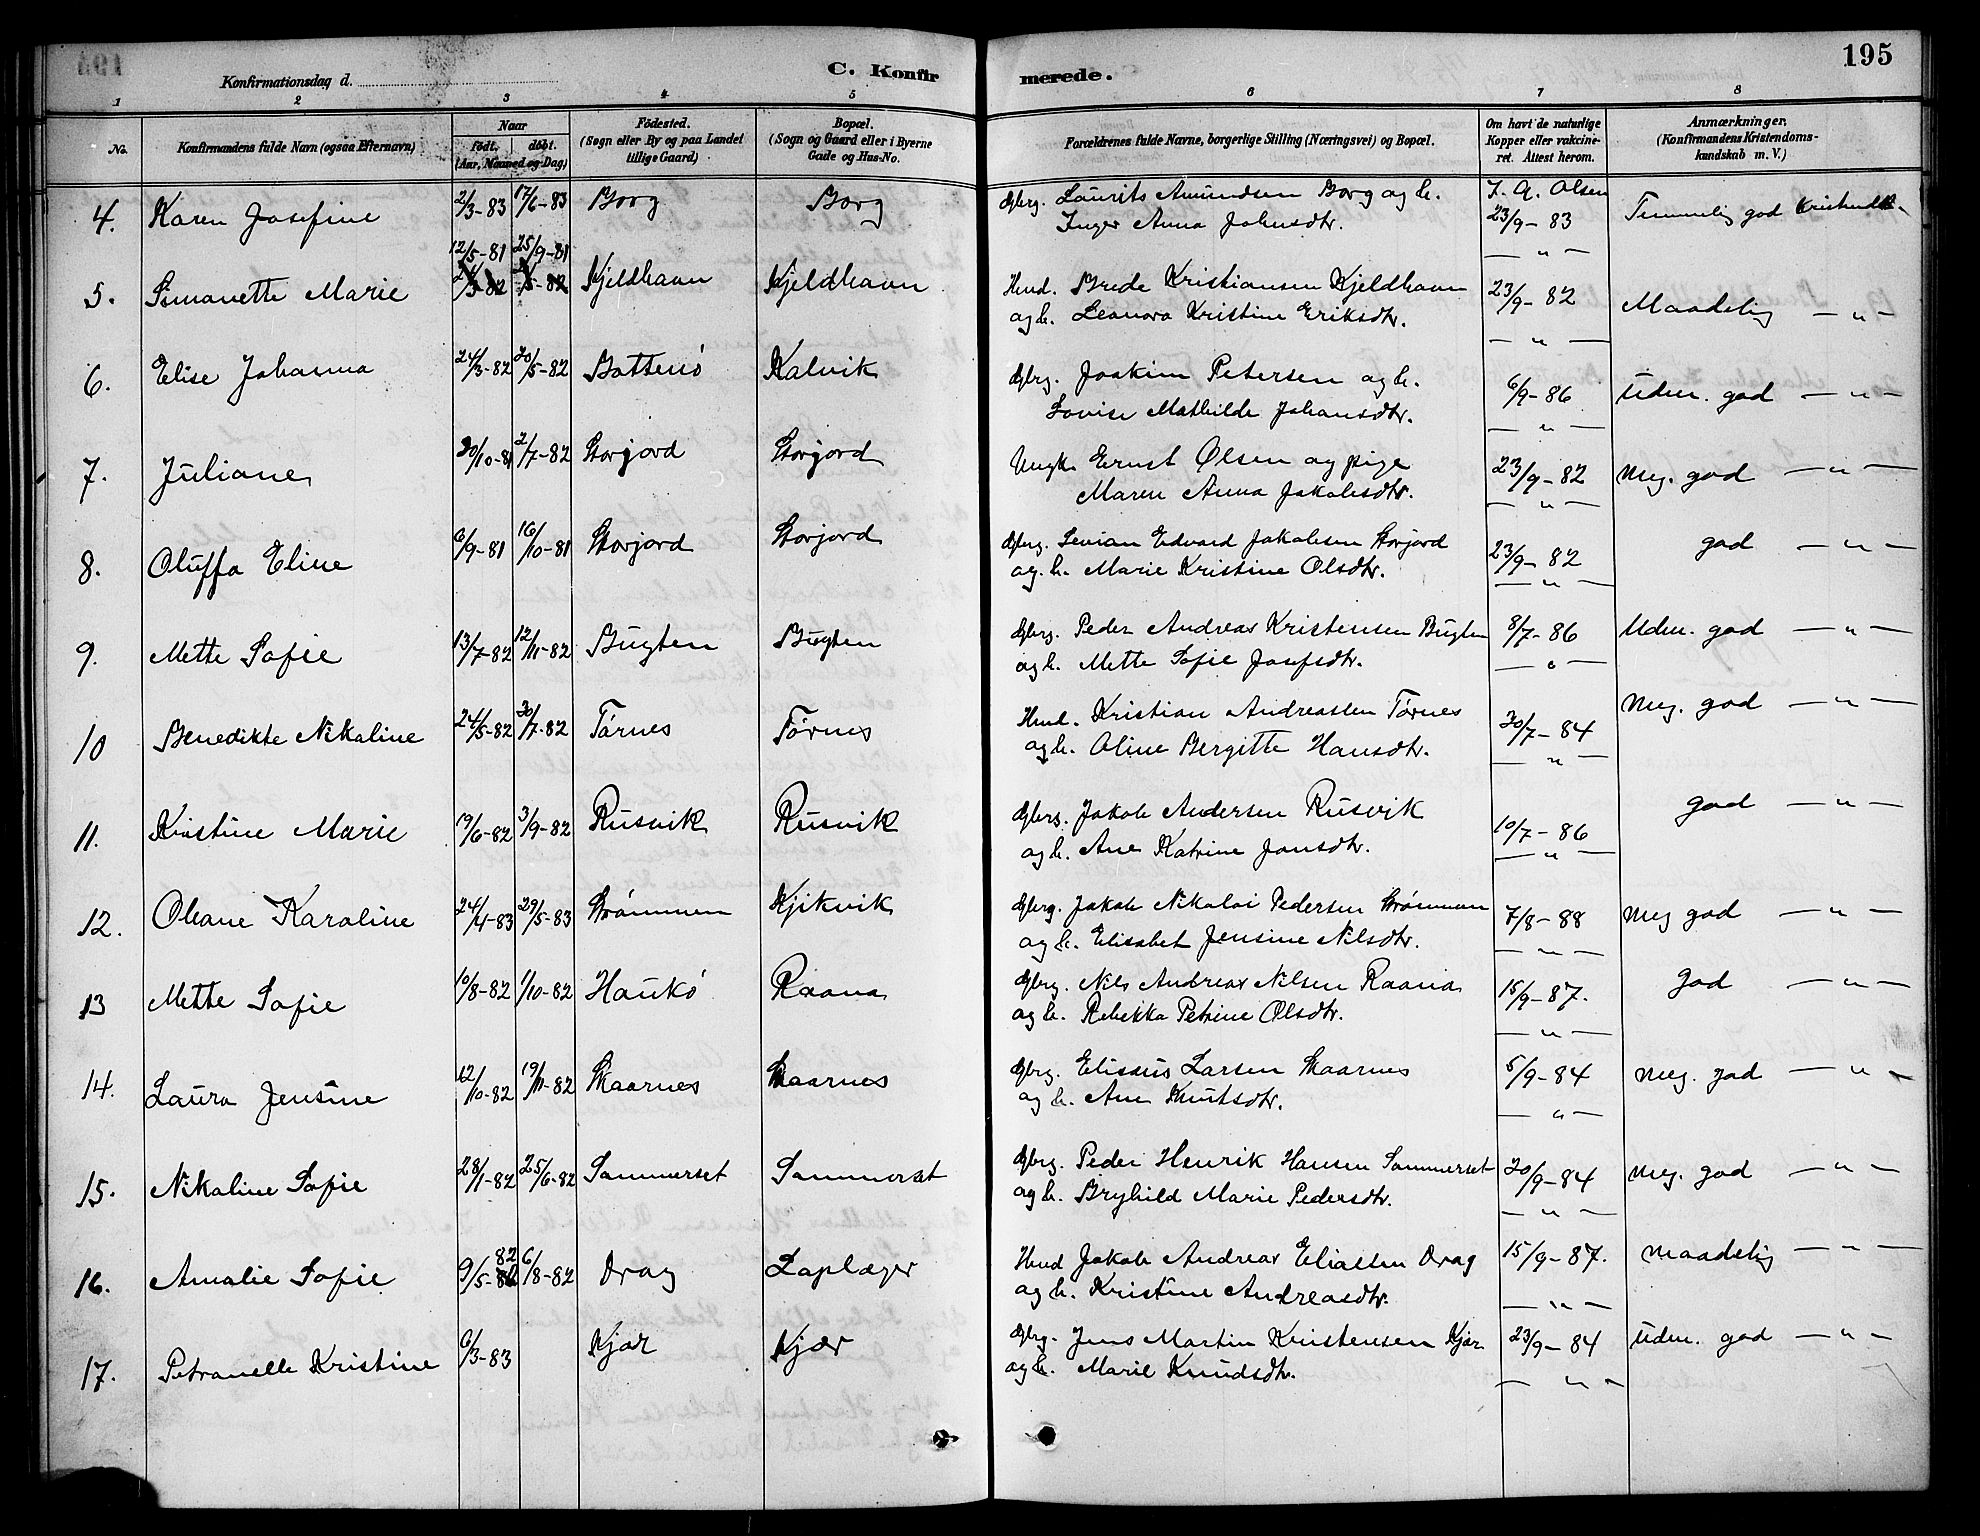 195
Konfirmationsdag d. C. Konfirmerede.
1 2 3 4 5 6 7 8
No. Konfirmandens fulde Navn (ogsaa Efternavn) Naar födt. döbt. (Aar, Maaned og Dag) Födested. (Sogn eller By og paa Landet tillige Gaard) Bopæl. (Sogn og Gaard eller i Byerne Gade og Hus-No. Forældrenes fulde Navne, borgerlige Stilling (Næringsvei) og Bopæl. Om havt de naturlige Kopper eller vakcineret. Attest herom. Anmærkninger. (Konfirmandens Kristendomskundskab m. V.)
4. Karen Josefine 2/3-83 17/6-83 Borg Borg Gbrg. Laurits Amundsen Borg og h. J. A. Olsen
Inger Anna Johnsdtr. 23/9-83 Temmelig god
— " —
12/5-81 25/9-81
5. Simonette Marie Kjeldhavn Kjeldhavn Hmd. Brede Kristiansen Kjeldhavn 23/9-82 Maadelig — " —
og h. Leonora Kristine Eriksdtr.
— " —
6. Elise Johanna 24/3-82 20/5-82 Bottenö Kalvik Gbrg. Joakim Petersen og h. 6/9-86 Uden. god — " —
Lovise Mathilde Johansdtr.
— " —
7. Juliane 30/10-81 2/7-82 Storjord Storjord Ungk. Ernst Olsen og pige 23/9-82 Meg. god — " —
Maren Anna Jakobsdtr.
— " —
8. Oluffa Eline 6/9-81 16/10-81 Storjord Storjord Gbrg. Levian Edvard Jakobsen Storjord 23/9-82 god — " —
og. h. Marie Kristine Olsdtr.
— " —
9. Mette Sofie 13/7-82 12/11-82 Bugten Bugten Gbrg. Peder Andreas Kristensen Bugten 8/7-86 Uden. god — " —
og h. Mette Sofie Josefsdtr.
— " —
10 Benedikte Nikoline 24/5-82 30/7-82 Tørnes Tørnes Hmd. Kristian Andreassen Tørnes 30/7-84 Meg. god — " —
og h. Oline Bergitte Hansdtr.
— " —
11. Kristine Marie 19/6-82 3/9-82 Rusvik Rusvik Gbrg. Jakob Andersen Rusvik 10/7-86 god — " —
og h. Ane Katrine Jonsdtr.
— " —
12. Oleane Karoline 24/4-83 29/5-83 Strömmen Kjikvik Gbrg. Jakob Nikolai Pedersen Strömmen 7/8-88 Meg god — " —
og h. Elisabet Jensine Nilsdtr.
— " —
13 Mette Sofie 10/8-82 1/10-82 Haukö Raana Gbrg. Nils Andreas Nilsen Raana 15/9-87. god — " —
og h. Rebekka Petrine Olsdtr.
— " —
14. Laura Jensine 12/10-82 19/11-82 Skaarnes Skaarnes Gbrg. Eliseus Larsen Skaarnes 5/9-84 Meg. god — " —
og h. Ane Knutsdtr.
— " —
15. Nikoline Sofie 28/1-82 25/6-82 Sommerset Sommerset Gbrg. Peder Henrik Hansen Sommerset 20/9-84 Meg. god — " —
og h. Brynhild Marie Pedersdtr.
— " —
16. Amalie Sofie 9/5-82 6/8-82 Drag Laplæger Hmd Jakob Andreas Eliassen Drag 15/9-87. Maadelig — " —
og h. Kristine Andreasdtr.
— " —
17. Petranelle Kristine 6/3-83 Kjær Kjær Gbrg. Jens Martin Kristensen Kjær 23/9-84 Uden. god — " —
og h. Marie Knudsdtr.
— " —